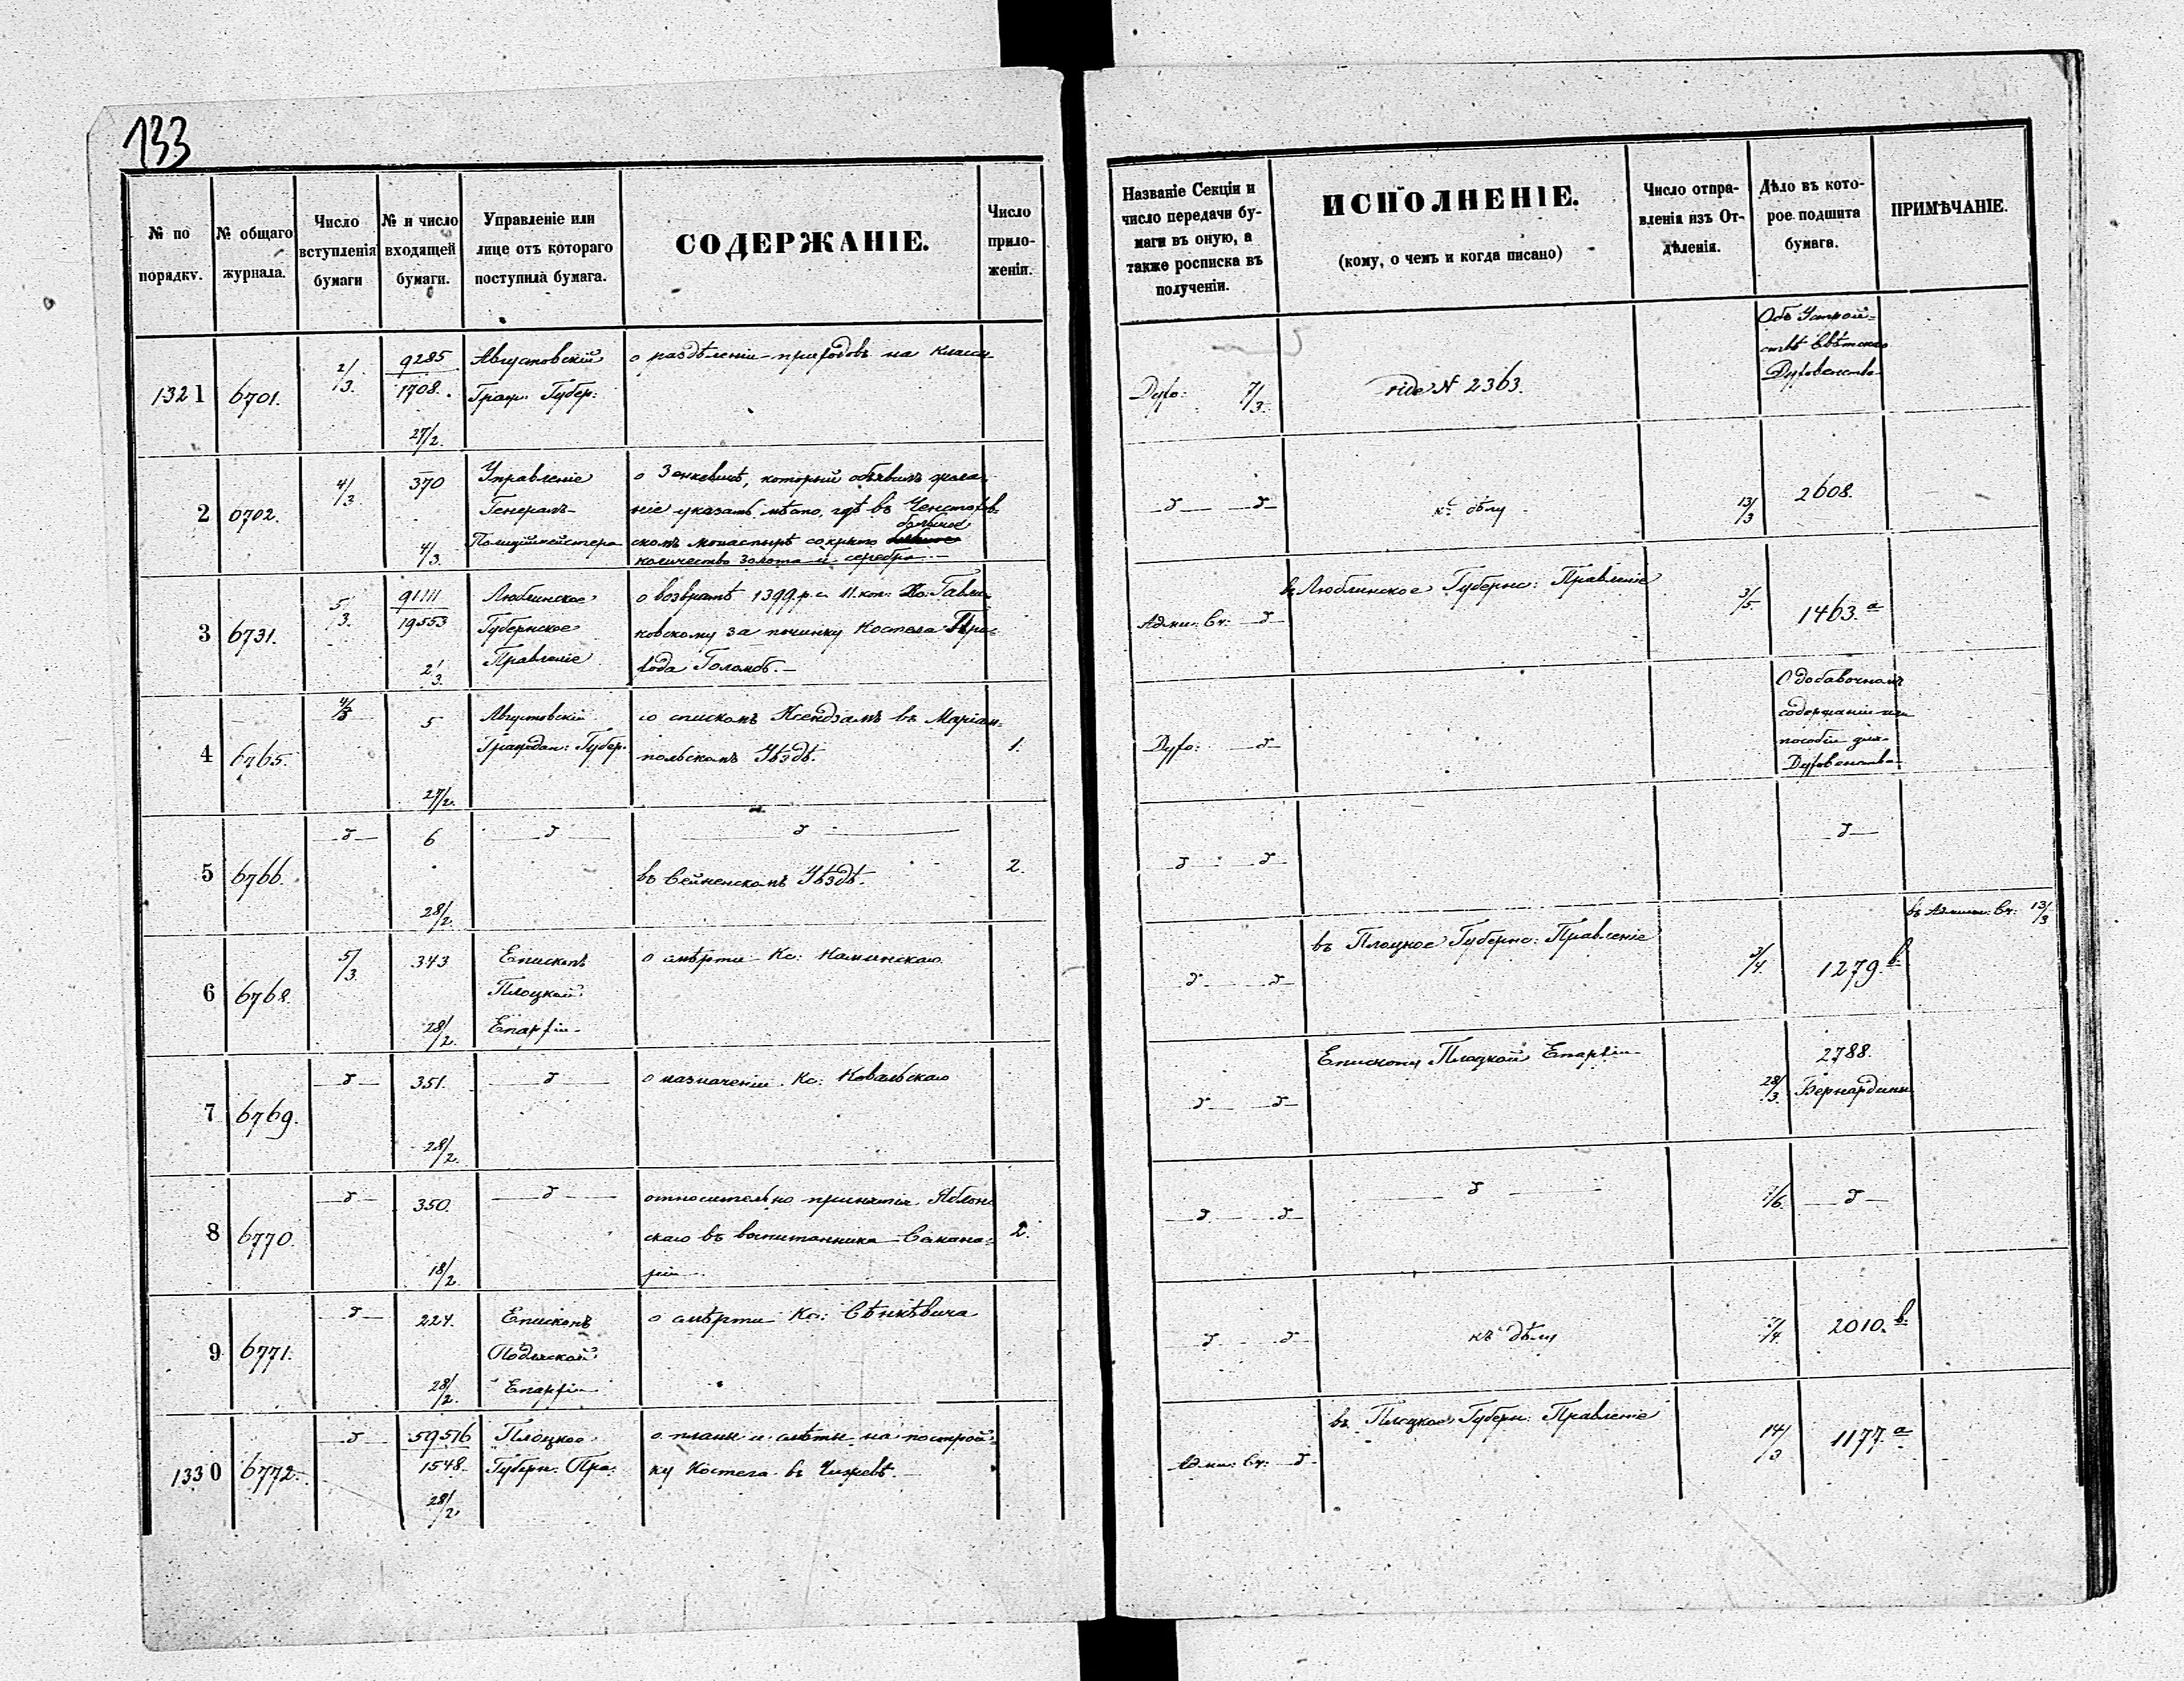 133
№ по порядку.
№ общаго журнала.
Число вступленія бумаги
№ и число входящей бумаги.
Управленіе или лице отъ котораго поступила бумага.
СОДЕРЖАНІЕ.
Число приложеній.
Названіе Секціи и
число передачи бу-
маги въ оную, а
также росписка въ
полученіи.
ИСПОЛНЕНІЕ.
(кому, о чемъ и когда писано)
Число отпра-
вленія изъ От-
дѣленія.
Дѣло въ кото-
рое подшита
бумага.
ПРИМѢЧАНІЕ.
1321 6701. 2/3. 9285
1708.
27/2.
Августовскій
Граж: Губер:
о раздѣленіи приходовъ на классы
Духо: 7/3.
vide N 2363.
Объ Устрой=
ствѣ Свѣтскаго
Духовенства
2 6702. 4/3 370
4/3.
Управленіе
Генералъ-
Полицiймейстера
о Зенкевичѣ, который объявилъ жела-
ніе указать мѣсто, гдѣ въ Ченстохов-
большое
скомъ монастырѣ сокрыто
количество золота и серебра.—
къ дѣлу
13/3
2608.
3 6731. 5/3. 91111
19553
2/3.
Люблинское
Губернское
Правленіе
о возвратѣ 1399 р. с. 11. коп:
ковскому за починку Костела При-
хода Голомбъ.—
Адми: Сч:
въ Люблинское Губернс: Правленіе
3/5.
1463.a
4 6765. 4/3 5
27/2.
Августовскій
Граждан: Губер.
со спискомъ Ксендзамъ въ Маріам=
польскомъ Уѣздѣ.
1.
Духо:
О добавочномъ
содержаніи или
пособіи для
Духовенства
5 6766. 6
28/2.
въ Сейненскомъ Уѣздѣ.
2.
6 6768. 5/3. 343
28/2.
Епископъ
Плоцкой
Епархіи
о смѣрти Кс: Каминскаго
въ Плоцкое Губернс: Правленіе
3/4.
1279.b.
въ Админ: Сч: 13/3
7 6769. 351.
28/2.
о назначеніи Кс: Ковальскаго
Епископу Плоцкой Епархіи
28/3.
2788.
Бернардины
8 6770. 350.
18/2
относительно принятія Яблон-
скаго въ воспитанника Семина=
ріи
2.
1/6.
9 6771. 224.
28/2.
Епископъ
Подляской
Епархіи
о смѣрти Кс: Сѣнкѣвича
къ дѣлу
7/4.
2010.b.
1330 6772. 59576
1548.
28/2.
Плоцкое
Губерн: Пра:
о планѣ и смѣтѣ на построй=
ку Костела въ Чижевѣ.—
Адми: Сч:
въ Плоцкое Губерн: Правленіе
14/3
1177.a